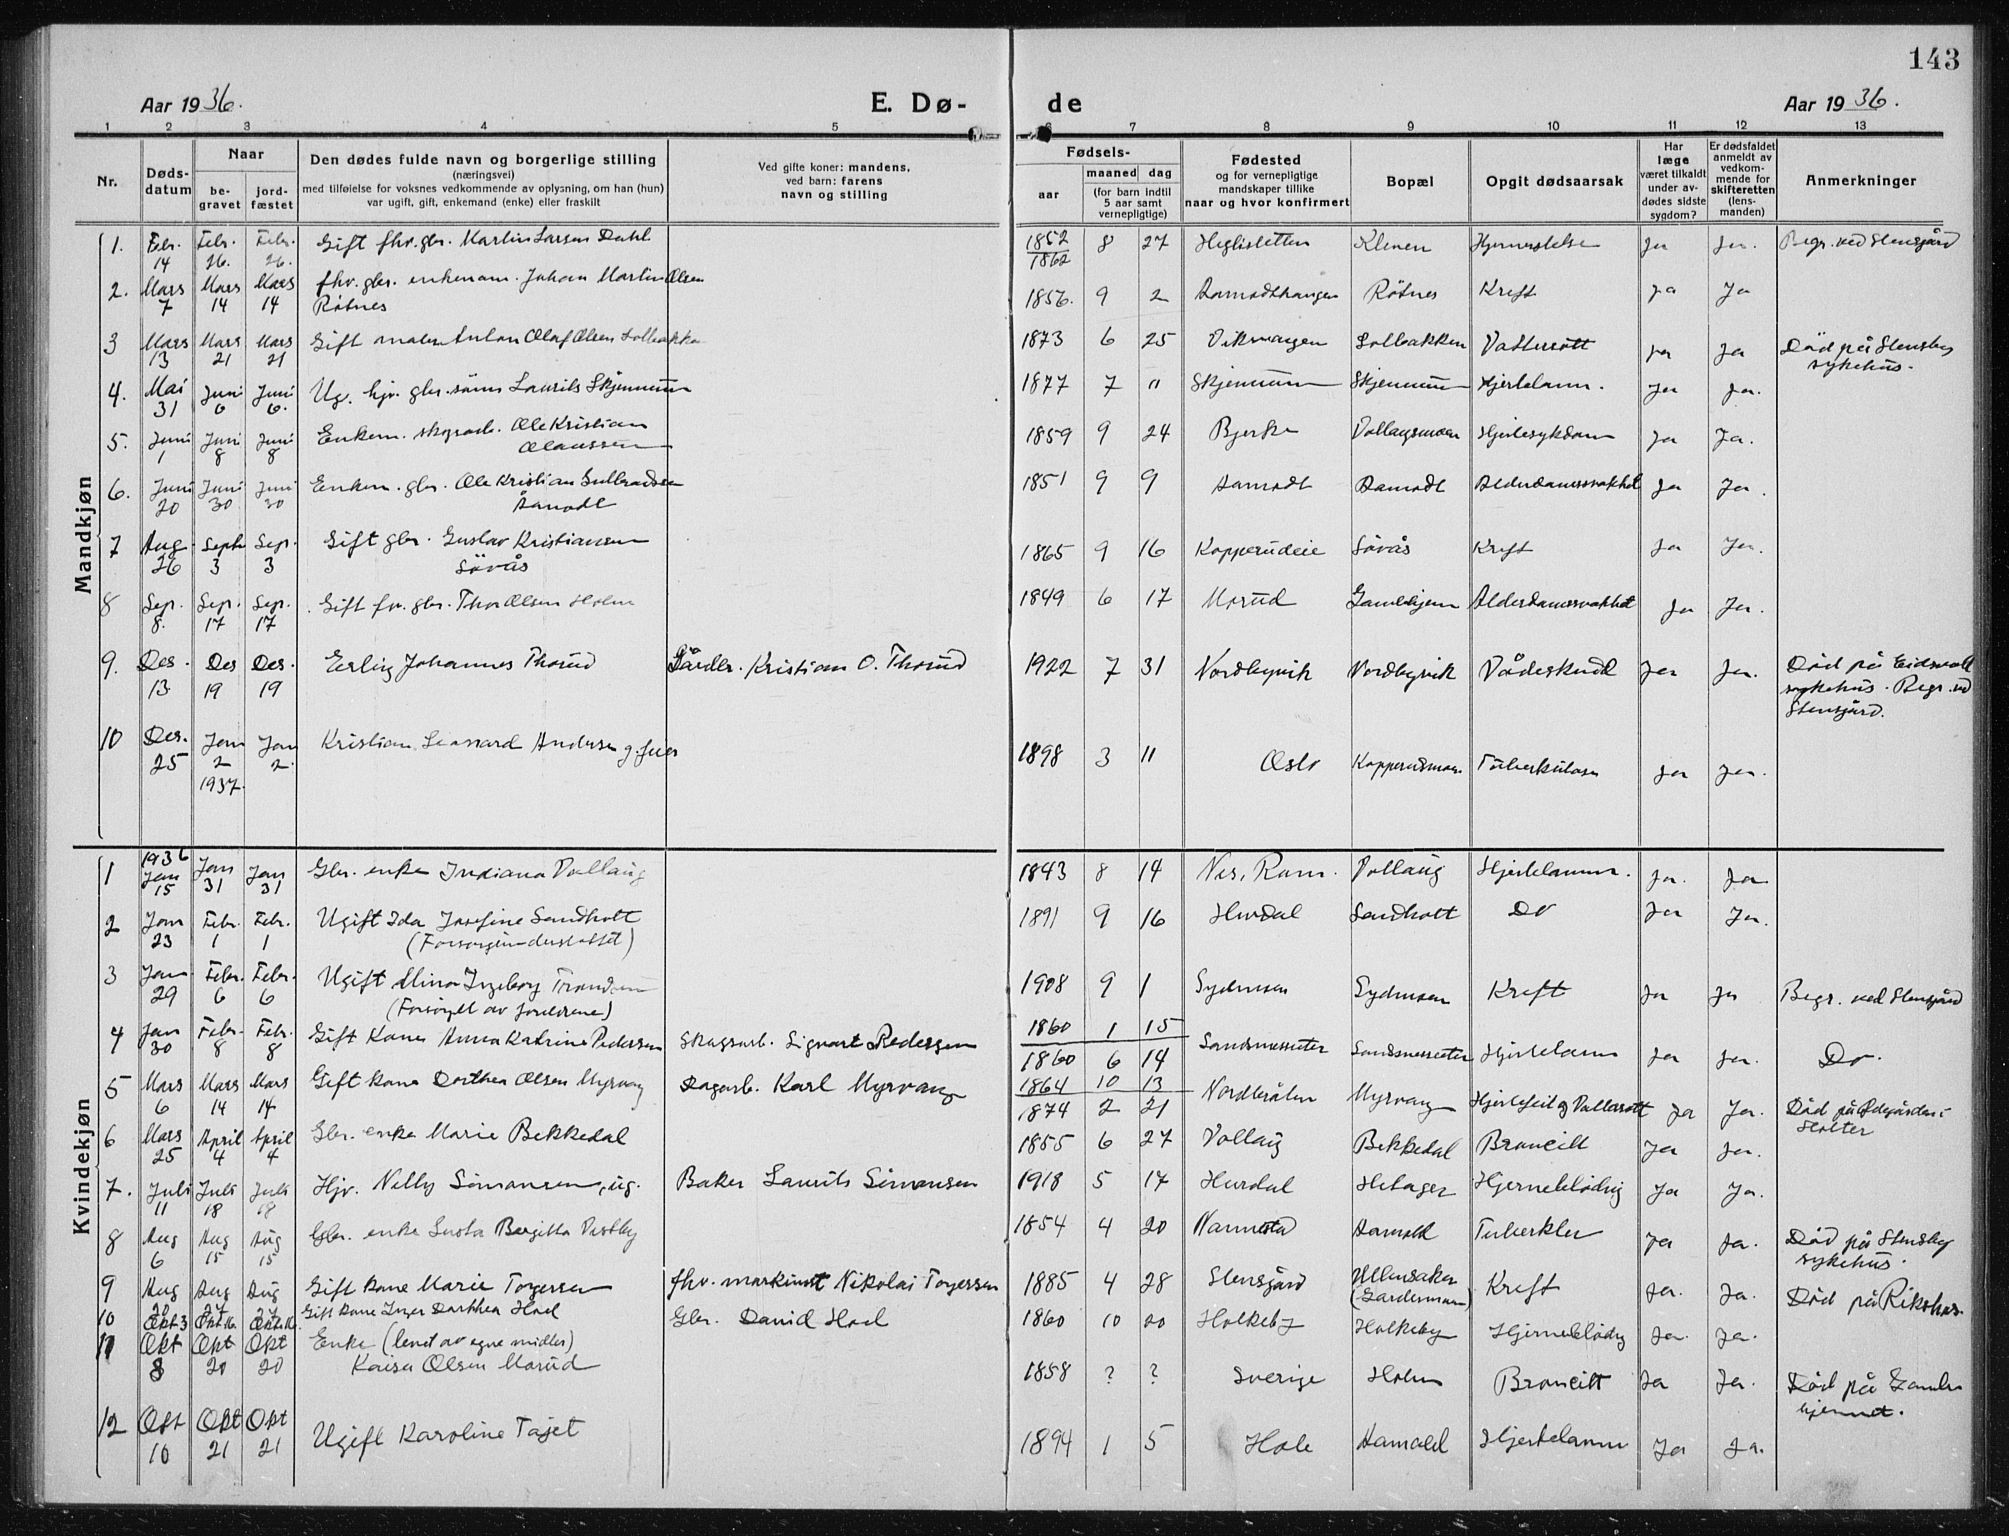 143
Aar 1936. E. Dø- de Aar 1936.
1 2 3 4 5 6 7 8 9 10 11 12 13
Nr. Døds-datum Naar be-gravet jord-fæstet
Den dødes fulde navn og borgerlige stilling
(næringsvei)
med tilføielse for voksnes vedkommende av oplysning, om han (hun)
var ugift, gift, enkemand (enke) eller fraskilt
Ved gifte koner: mandens,
ved barn: farens
navn og stilling
Fødsels- aar maaned dag
(for barn indtil
5 aar samt
vernepligtige)
Fødested
og for vernepligtige
mandskaper tillike
naar og hvor konfirmert
Bopæl
Opgit dødsaarsak
Har
læge
været tilkaldt
under av-
dødes sidste
sygdom?
Er dødsfaldet
anmeldt av
vedkom-
mende for
skifteretten
(lens-
manden)
Anmerkninger
Mandkjøn
1. Febr. 14 Febr. 26. Febr. 26. Gift fhv. gbr. Martin Larsen Dahl 1852 1862 8 27 Ja Ja. Begr. ved Stensgård
2. Mars 7 Mars 14 Mars 14 fhv. gbr. enkemam. Johan Martin Olsen
Røtnes 1856. 9 2 Røtnes Kreft ja Ja
3 Mars 13 Mars 21 Mars 21 Gift maler Anton Olaf Olsen Solbakken 1873 6 25 Solbakken Vattersott ja Ja Död på Stensby
sykehus.
4. Mai 31 Juni 6 Juni 6. Ug. hjv. gbr. söns Laurits Skjennum 1877 7 11 Skjennum Skjennum Hjertelamm. Ja Ja.
5. Juni 1 Juni 8 Juni 8 Enkem. skogsarb. Ole Kristian
Olaussen 1859 9 24 Bjerke Hjertesykdom Ja Ja.
6. Juni 20 Juni 30 Juni 30 Enkem. gbr. Ole Kristian Gulbrandsen
Åamodt 1851 9 9 Aamodt Aamodt Alderdomssvakhet Ja Ja.
7 Aug 26 Septr 3 Sep. 3 Gift gbr. Gustav Kristiansen
Sövås 1865 9 16 Kopperudeie Sövås Kreft Ja Ja.
8 Sep. 8. Sep. 17 Sep. 17 Gift fv. gbr. Thor Olsen Holm 1849 6 17 Morud Gamlehjem Alderdomssvakhet Ja Ja.
9. Des. 13 Des 19 Des. 19 Erling Johannes Thorud Gårdbr. Kristian O. Thorud 1922 7 31 Nordbyvik Nordbyvik Vådeskudd Ja Ja. Död på Eidsvoll
sykehus. Begr. ved
Stensgård.
10 Des. 25 Jan 2 1937. Jan 2. Kristian Lennard Andersen 1898 3 11 Oslo Kopperudmoen Tuberkulose Ja Ja.
Kvindekjøn
1 1936 Jan 15 Jan 31 Jan 31 Gbr. enke Indiana Vollaug 1843 8 14 Nes, Rom. Vollaug Hjertelamm. Ja. Ja
2 Jan 23 Febr. 1 Febr. 1 Ugift Ida Josefine Sandholt
1891 9 16 Hurdal Sandholt Do Ja Ja.
3 Jan 29 Febr. 6 Febr. 6 Ugift Mina Ingeborg
(Forsörget av foreldrene) 1908 9 1 Sydmoen Sydmoen Kreft Ja Ja Begr. ved Stensgård
4 Jan 30 Febr. 8 Febr. 8 Gift Kone Anna Katrine Pedersen Skogsarb. Sigvart Pedersen 1860 1 15
1860 6 14 Sandsnesseter Sandsnesseter Hjertelamm Ja Ja. Do.
5 Mars 6 Mars 14 Mars 14 Gift kone Dorthea Olsen Myrvang Dagarb. Karl Myrvang 1864 10 13
1874 2 21 Nordbråten Myrvang Hjertefeil og Vattersott Ja Ja. Död på Ödegården i
Holter
6 Mars 25 April 4 April 4 Gbr. enke Marie Bekkedal 1855 6 27 Vollaug Bekkedal Broncitt Ja Ja.
7. Juli 11 Juli 18 Juli 18 Hjv. Nelly Simonsen, ug. Baker Laurits Simonsen 1918 5 17 Hurdal Hjerneblödng Ja Ja.
8 Aug 6 Aug 15 Aug 15 Gbr. enke Gusta Bergitta Vestby 1854 4 20 Nannestad Aamodt Tuberkler Ja Ja. Död på Stensby
sykehus.
9 Aug 20 Aug 27 Aug 27 Gift kone Marie Torgersen fhv. maskinist Nikolai Torgersen 1885 4 28 Stensgård Ullensaker
(Gardermoen) Kreft Ja. Ja. Död på Rikshos.
10 Okt 3 Okt 16. Okt 16. Gift kone Inger Dorthea Hoel Gbr. David Hoel 1860 10 20 Holkeby Holkeby Hjerneblödng Ja. Ja.
11 Okt 8 Okt 20 Okt 20 Enke (levet av egne midler)
Kaisa Olsen Morud 1858 ? ? Sverige Holm Broncitt Ja Ja. Död på Gamle-
hjemmet.
12 Okt 10 Okt 21 Okt 21 Ugift Karoline Tajet 1894 1 5 Hole Aamodt Hjertelamm Ja Ja.